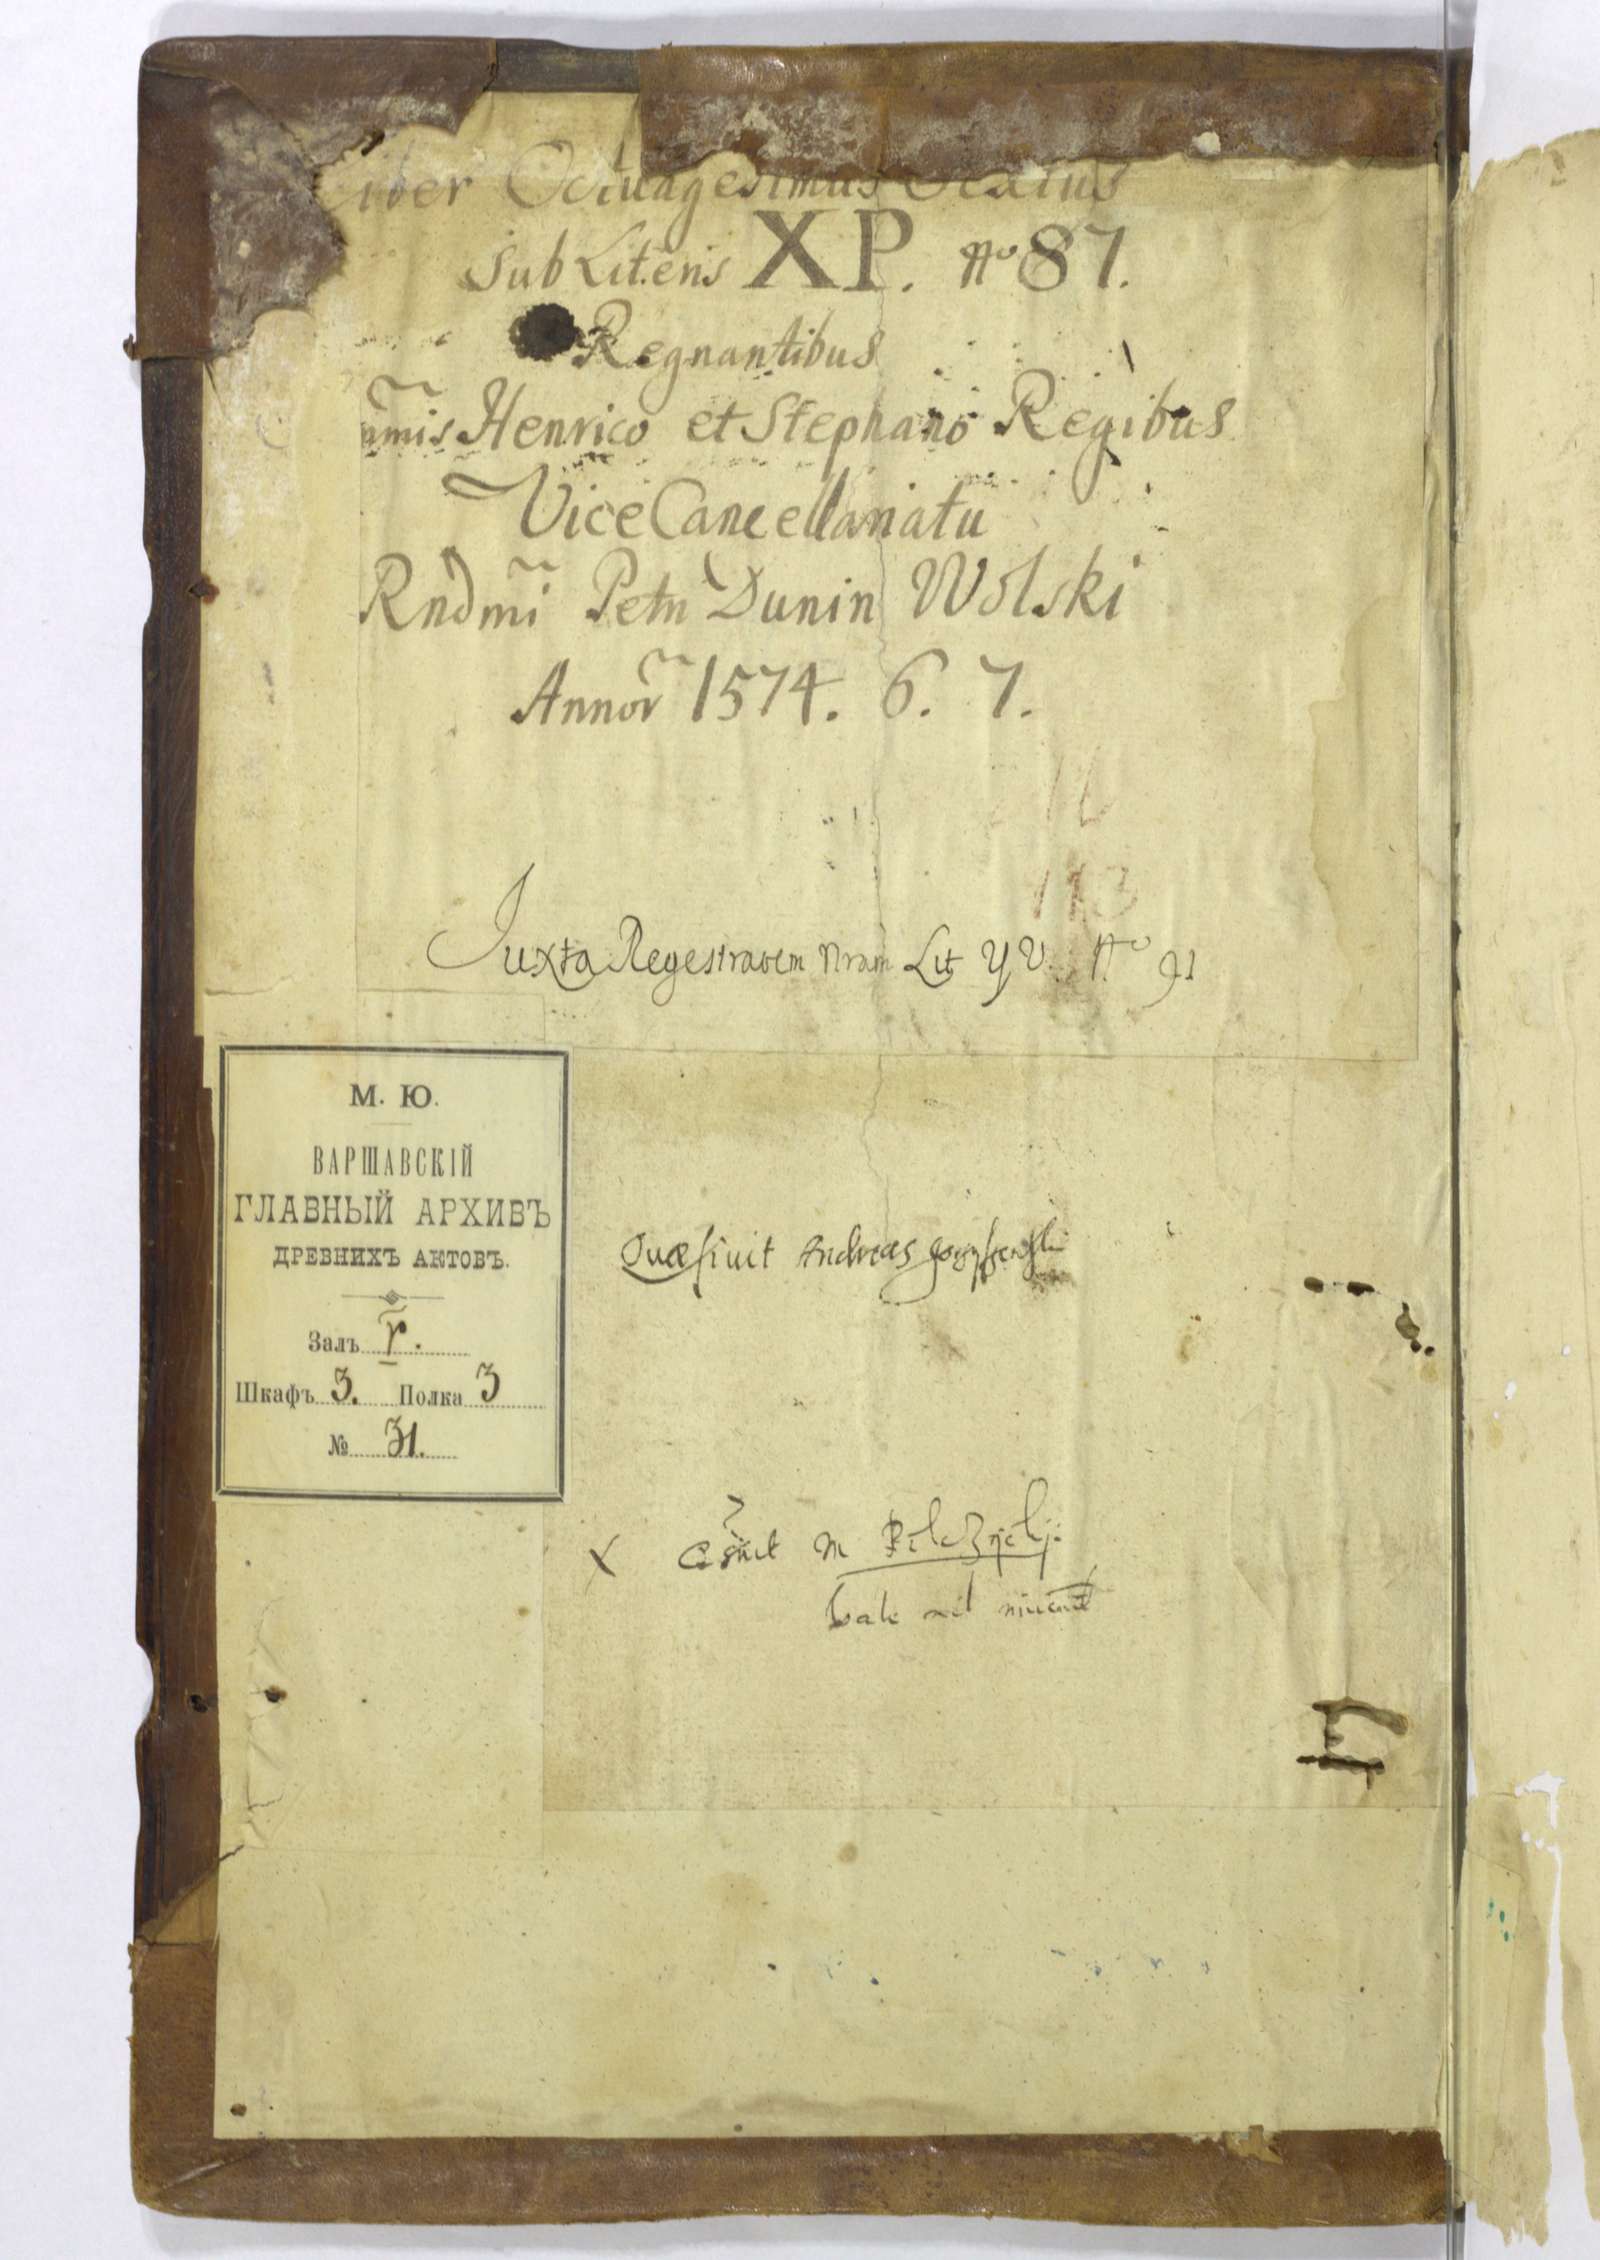 iber Octuagesimus Sextus
Sub Literis XP. No 87.
Regnantibus
Henrico et Stephano Regibus
ViceCancellariatu
Rndmi Petri Dunin Wolski
Annor 1574. 6. 7.
113
Juxta Regestraoem nram Lit YV No 91
М. Ю.
ВАРШАВСКІЙ
ГЛАВНЫЙ АРХИВЪ
ДРЕВНИХЪ АКТОВЪ.
Залъ
Шкафъ 3. Полка 3
№ 31.
Quaesiuit Andreas
X